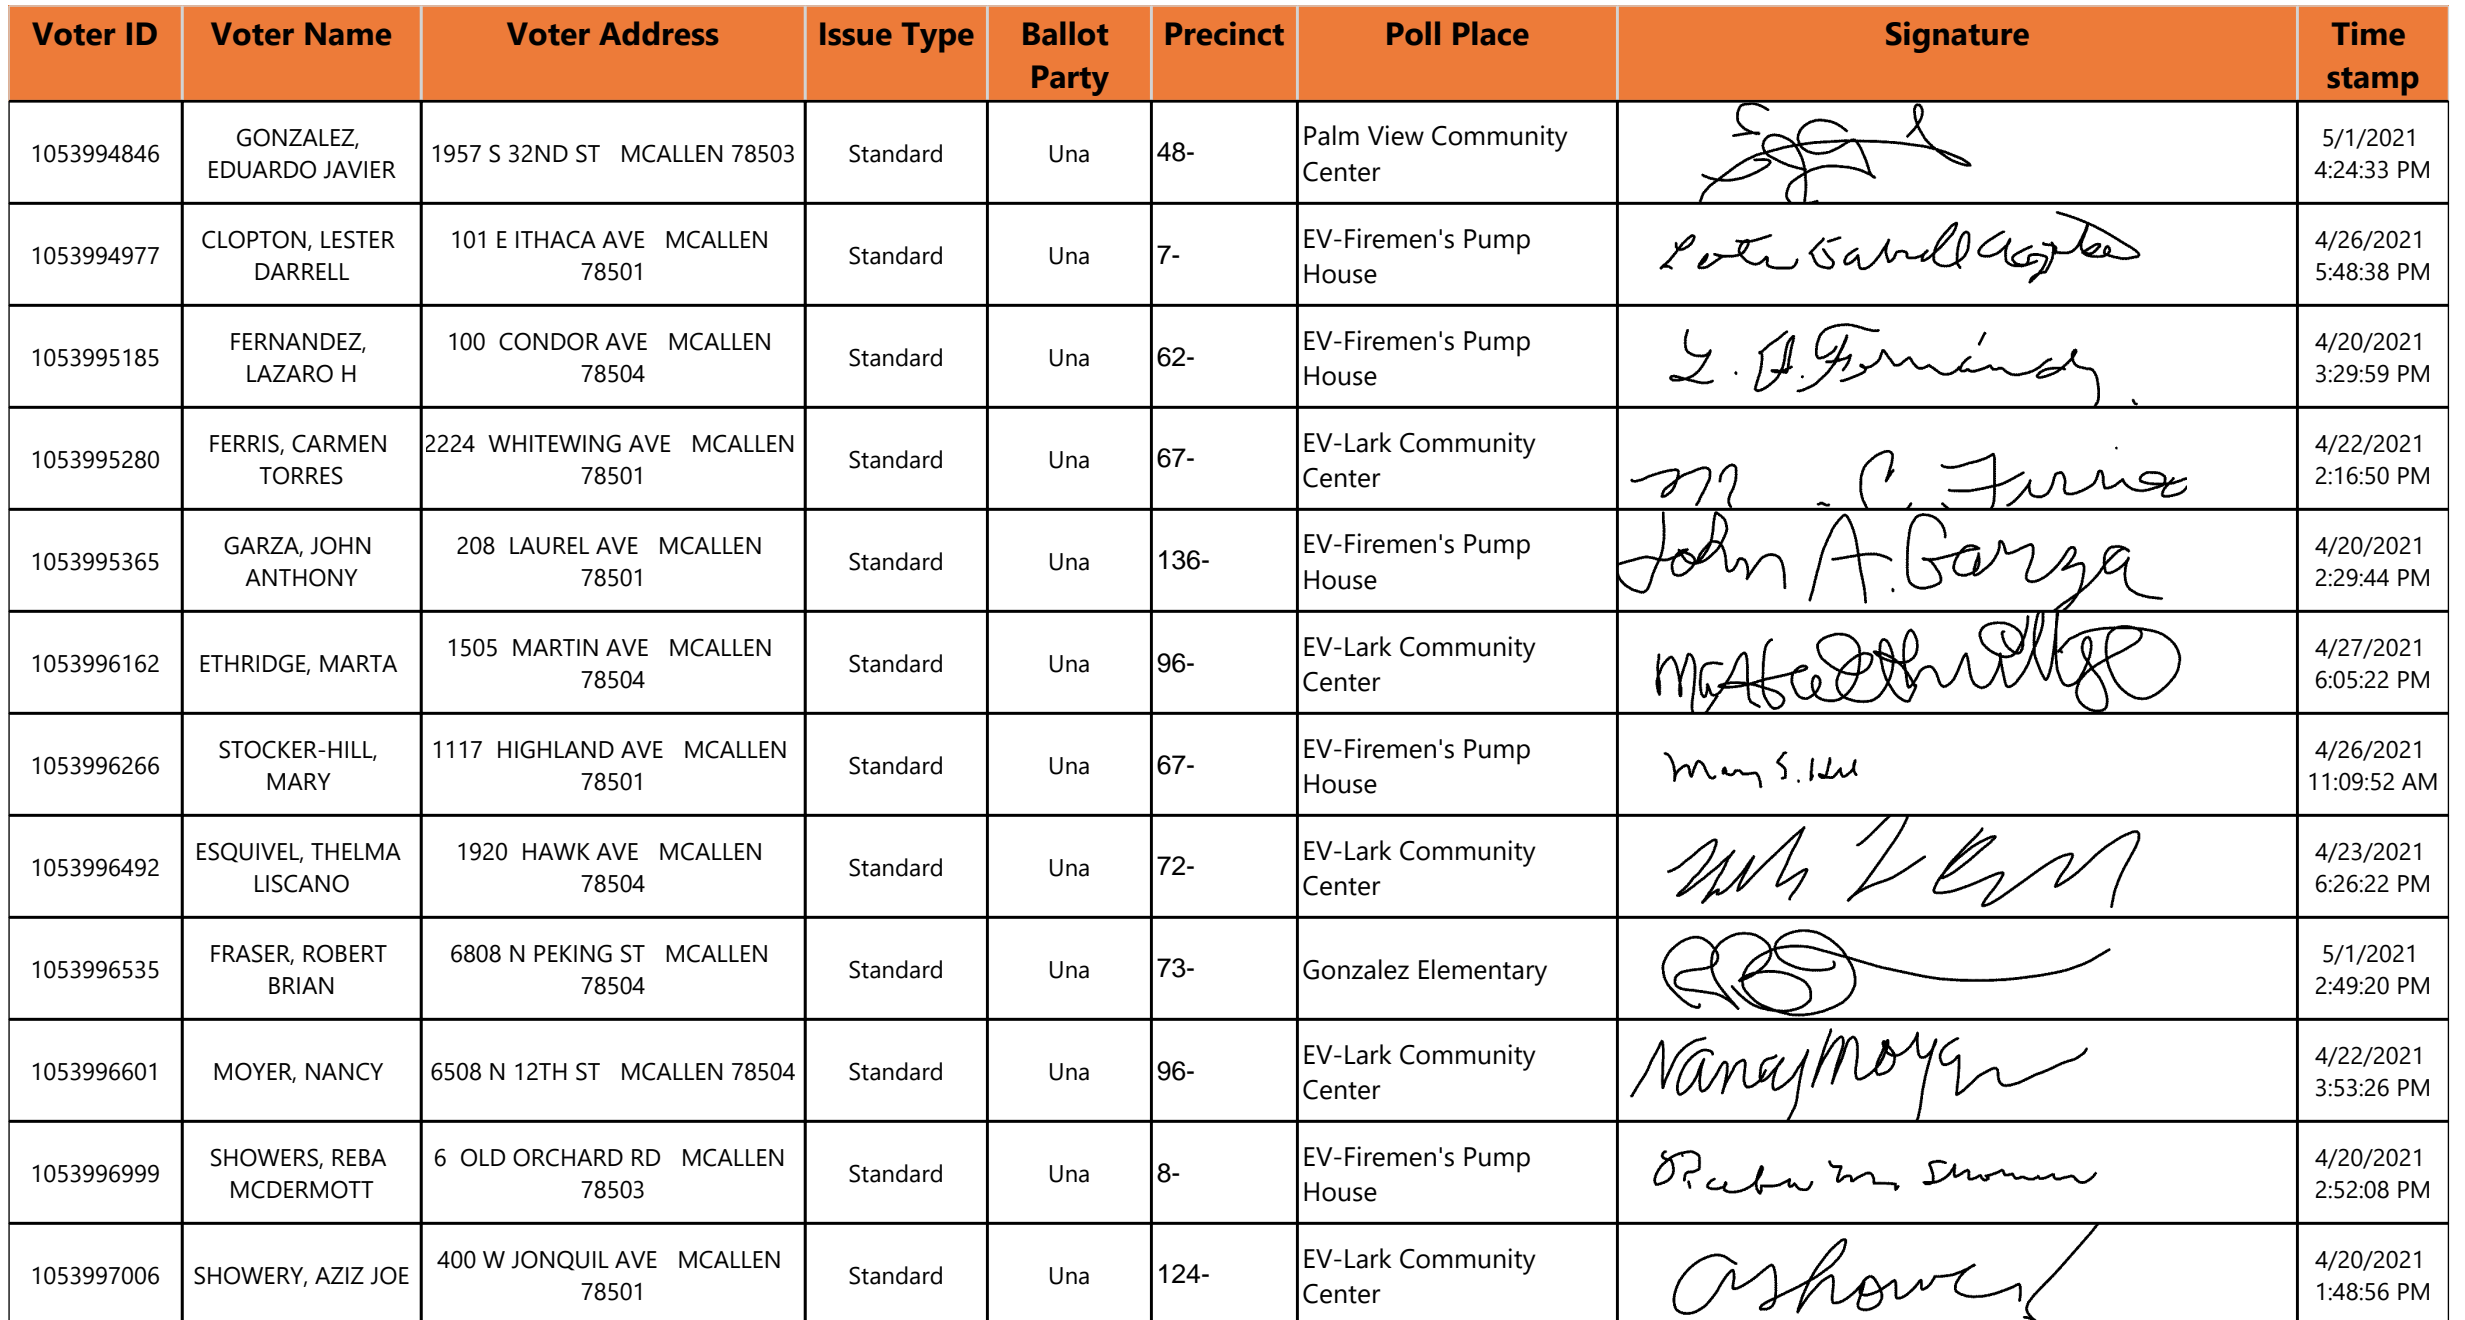 Voter ID Voter Name Voter Address Issue Type Ballot Party Precinct Poll Place Signature Time stamp
1053994846 GONZALEZ, EDUARDO JAVIER 1957 S 32ND ST MCALLEN 78503 Standard Una 48- Palm View Community Center 5/1/2021 4:24:33 PM
1053994977 CLOPTON, LESTER DARRELL 101 E ITHACA AVE MCALLEN 78501 Standard Una 7- EV-Firemen's Pump House 4/26/2021 5:48:38 PM
1053995185 FERNANDEZ, LAZARO H 100 CONDOR AVE MCALLEN 78504 Standard Una 62- EV-Firemen's Pump House 4/20/2021 3:29:59 PM
1053995280 FERRIS, CARMEN TORRES 2224 WHITEWING AVE MCALLEN 78501 Standard Una 67- EV-Lark Community Center 4/22/2021 2:16:50 PM
1053995365 GARZA, JOHN ANTHONY 208 LAUREL AVE MCALLEN 78501 Standard Una 136- EV-Firemen's Pump House John A. Garza 4/20/2021 2:29:44 PM
1053996162 ETHRIDGE, MARTA 1505 MARTIN AVE MCALLEN 78504 Standard Una 96- EV-Lark Community Center 4/27/2021 6:05:22 PM
1053996266 STOCKER-HILL, MARY 1117 HIGHLAND AVE MCALLEN 78501 Standard Una 67- EV-Firemen's Pump House Mary S. Hill 4/26/2021 11:09:52 AM
1053996492 ESQUIVEL, THELMA LISCANO 1920 HAWK AVE MCALLEN 78504 Standard Una 72- EV-Lark Community Center 4/23/2021 6:26:22 PM
1053996535 FRASER, ROBERT BRIAN 6808 N PEKING ST MCALLEN 78504 Standard Una 73- Gonzalez Elementary 5/1/2021 2:49:20 PM
1053996601 MOYER, NANCY 6508 N 12TH ST MCALLEN 78504 Standard Una 96- EV-Lark Community Center Nancy Moyer 4/22/2021 3:53:26 PM
1053996999 SHOWERS, REBA MCDERMOTT 6 OLD ORCHARD RD MCALLEN 78503 Standard Una 8- EV-Firemen's Pump House Reba M. Showers 4/20/2021 2:52:08 PM
1053997006 SHOWERY, AZIZ JOE 400 W JONQUIL AVE MCALLEN 78501 Standard Una 124- EV-Lark Community Center 4/20/2021 1:48:56 PM